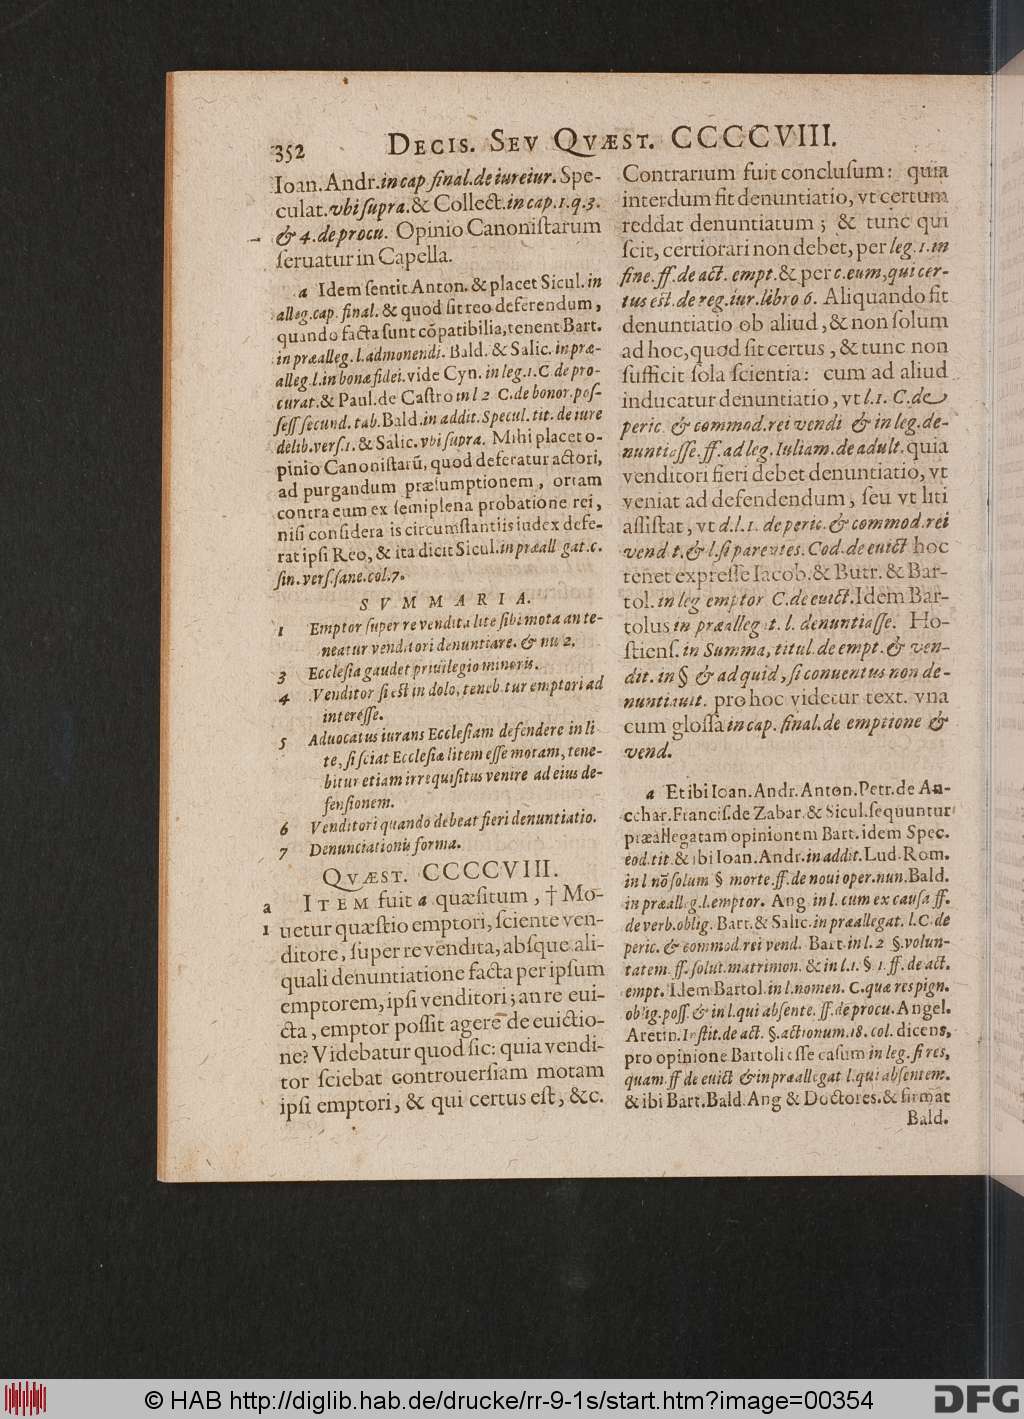 352 DECIS. SEV QVÆST. CCCCVIII.
Ioan. Andr. in cap final. de iureiur. Spe-
culat. vbi supra. & Collect. in cap. 1. q. 3.
& 4. de procu. Opinio Canonistarum
seruatur in Capella.
a Idem sentit Anton. & placet Sicul. in
alleg. cap. final. & quod sit reo deferendum,
quando facta sunt cōpatibilia, tenent Bart.
in præalleg. l. admonendi. Bald. & Salic. in præ-
alleg. l. in bonæ fidei. vide Cyn. in leg. 1. C de pro-
curat. & Paul. de Castro in l 2 C. de bonor. pos-
sess secund. tab. Bald. in addit. Specul. tit. de iure
delib. vers. 1. & Salic. vbi supra. Mihi placet o-
pinio Canonistarū, quod deferatur actori,
ad purgandum præsumptionem, ortam
contra eum ex semiplena probatione rei,
nisi considera is circumstantiis iudex defe-
rat ipsi Reo, & ita dicit Sicul. in præall gat. c.
fin. vers. sane. col. 7.
SVMMARIA.
1 Emptor super re vendita lite sibi mota an te-
neatur venditori denuntiare. & nu 2.
3 Ecclesia gaudet priuilegio minoris.
4 Venditor si est in dolo, teneb tur emptori ad
interesse.
5 Aduocatus iurans Ecclesiam defendere in li
te, si sciat Ecclesiæ litem esse motam, tene-
bitur etiam irrequisitus venire ad eius de-
fensionem.
6 Venditori quando debeat fieri denuntiatio.
7 Denunciationis forma.
QVÆST. CCCCVIII.
a ITEM fuit a quæsitum, † Mo-
1 uetur quæstio emptori, sciente ven-
ditore, super re vendita, absque ali-
quali denuntiatione facta per ipsum
emptorem, ipsi venditori; an re eui-
cta, emptor possit agere de euictio-
ne? Videbatur quod sic: quia vendi-
tor sciebat controuersiam motam
ipsi emptori, & qui certus est, &c.
Contrarium fuit conclusum: quia
interdum fit denuntiatio, vt certum
reddat denuntiatum; & tunc qui
scit, certiorari non debet, per leg. 1. in
fine. ff. de act. empt. & per c. eum, qui cer-
tus est. de reg. iur. libro 6. Aliquando fit
denuntiatio ob aliud, & non solum
ad hoc, quod sit certus, & tunc non
sufficit sola scientia: cum ad aliud
inducatur denuntiatio, vt l. 1. C. de
peric. & commod. rei vendi & in leg. de-
nuntiasse. ff. ad leg. Iuliam. de adult. quia
venditori fieri debet denuntiatio, vt
veniat ad defendendum, seu vt liti
assistat, vt d. l. 1. de peric. & commod. rei
vend t. & l. si parentes. Cod. de euict hoc
tenet expresse Iacob. & Butr. & Bar-
tol. in leg emptor C. de euict. Idem Bar-
tolus in præalleg t. l. denuntiasse. Ho-
stiens. in Summa, titul. de empt. & ven-
dit. in § & ad quid, si conuentus non de-
nuntiauit. pro hoc videtur text. vna
cum glossa in cap. final. de emptione &
vend.
a Et ibi Ioan. Andr. Anton. Petr. de An-
cchar. Francis. de Zabar. & Sicul. sequuntur
præallegatam opinionem Bart. idem Spec.
eod. tit. & ibi Ioan. Andr. in addit. Lud. Rom.
in l nō solum § morte. ff. de noui oper. nun. Bald.
in præalleg. l. emptor. Ang in l. cum ex causa ff.
de verb. oblig. Bart. & Salic. in præallegat. l. C. de
peric. & commod. rei vend. Bart in l. 2 §. volun-
tatem. ff. solut. matrimon. & in l. 1. § 1. ff. de act.
empt. Idem Bartol. in l. nomen. C. quæ res pign.
oblig. poss. & in l. qui absente. ff. de procu. Angel.
Aretin. Instit. de act. §. actionum. 18. col. dicens,
pro opinione Bartoli esse casum in leg. si res,
quam. ff de euict & in præallegat l. qui absentem.
& ibi Bart. Bald. Ang & Doctores. & firmat
Bald.
© HAB http://diglib.hab.de/drucke/rr-9-1s/start.htm?image=00354
DFG